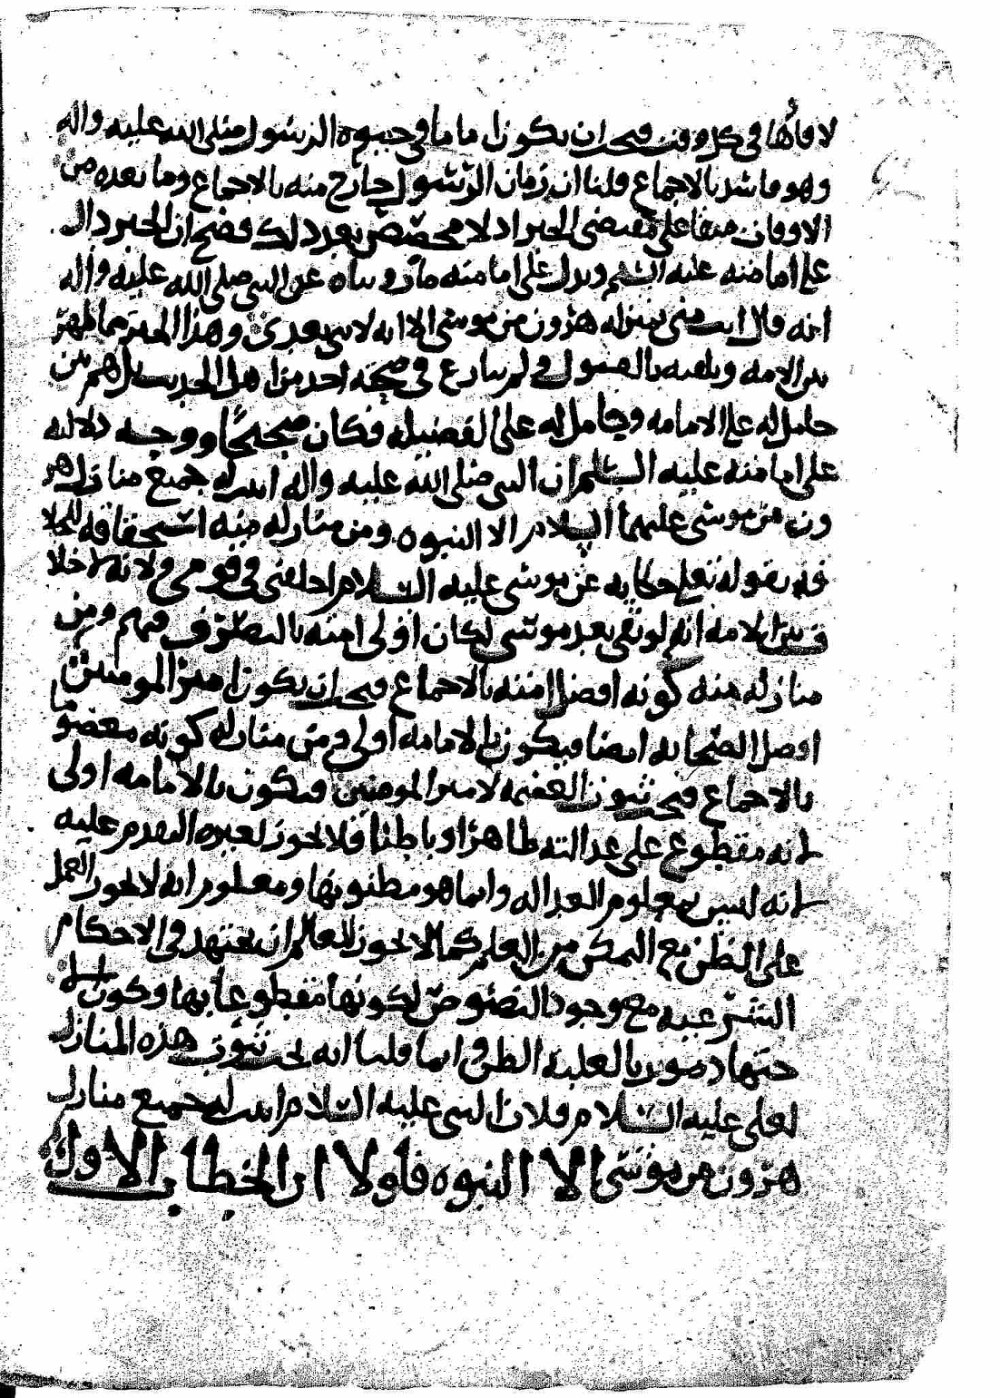 لاوقاتها في كل وقت فيجب ان يكون اماما في حيوة الرسول صلى الله عليه واله
وهو فاسد بالاجماع قلنا ان زمان الرسول خارج منه بالاجماع وما بعده من
الاوقات مبقا على مقتضى الخبر اذ لا مخصص بعد ذلك فصح ان الخبر دال
على امامته عليه السلم ويدل على امامته ما رويناه عن النبي صلى الله عليه واله
انه قال انت مني بمنزلة هرون من موسى الا انه لا نبي بعدي وهذا الخبر مما ظهر
بين الامه وتلقته بالقبول ولم ينازع في صحته احد من اهل الحديث بل هم بين
حامل له على الامامه وحامل له على الفضيله فكان صحيحا ووجه دلالته
على امامته عليه السلم ان النبي صلى الله عليه واله اثبت له جميع منازل هر
ون من موسى عليهما السلام الا النبوه ومن منازله منه استحقاقه للخلا
فه بقوله تعلى حكايه عن موسى عليه السلام اخلفني في قومي ولانه لا خلا
ف بين الامه انه لو بقي بعد موسى لكان اولى امته بالتصرف فيهم ومن
منازله منه كونه افضل امته بالاجماع فيجب ان يكون امير المومنين
افضل الصحابه ايضا فيكون بالامامه اولى ومن منازله كونه معصوما
بالاجماع فيجب ثبوت العصمه لامير المومنين فيكون بالامامه اولى
لانه مقطوع على عدالته ظاهرا وباطنا فلا يجوز لغيره التقدم عليه
لانه ليس بمعلوم العداله وانما هو مظنونها ومعلوم انه لا يجوز العمل
على الظن مع التمكن من العلم كما لا يجوز للعالم ان يجتهد في الاحكام
الشرعيه مع وجود النصوص لكونها مقطوعا بها وكون الا
جتهاد صوريا لغلبة الظن وانما قلنا انه يجب ثبوت هذه المنازل
لعلي عليه السلام فلان النبي عليه السلام اثبت له جميع منازل
هرون من موسى الا النبوه فاولا ان الخطاب الاول